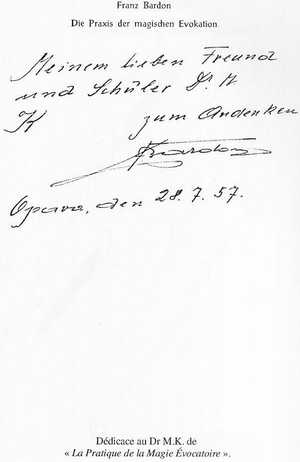 Franz Bardon
Die Praxis der magischen Evokation
Meinem lieben Freund
und Schüler Dr. M
K zum Andenken
FBardon
Opava, den 28.7.57.
Dédicace au Dr M.K. de
« La Pratique de la Magie Évocatoire ».